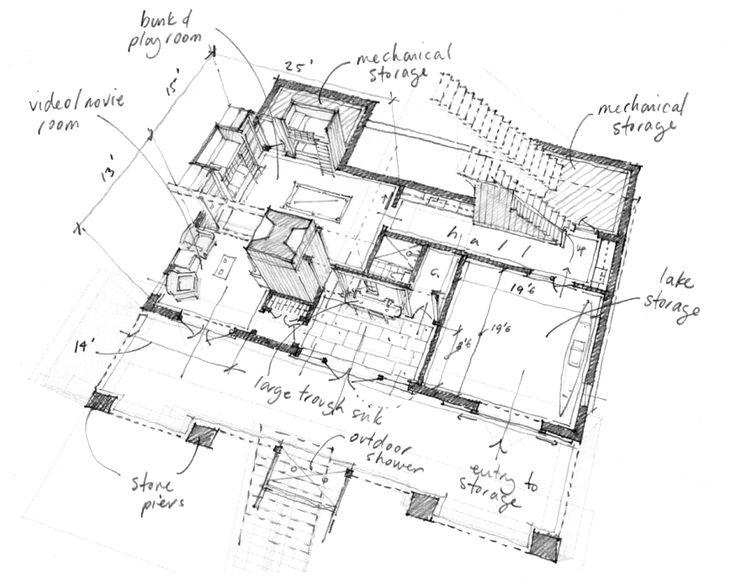 bunk &
play room
25'
mechanical
storage
15'
video/movie
room
mechanical
storage
13'
hall
up
c.
lake
storage
19'6
19'6
8'6
14'
large trough sink
outdoor
shower
entry to
storage
stone
piers